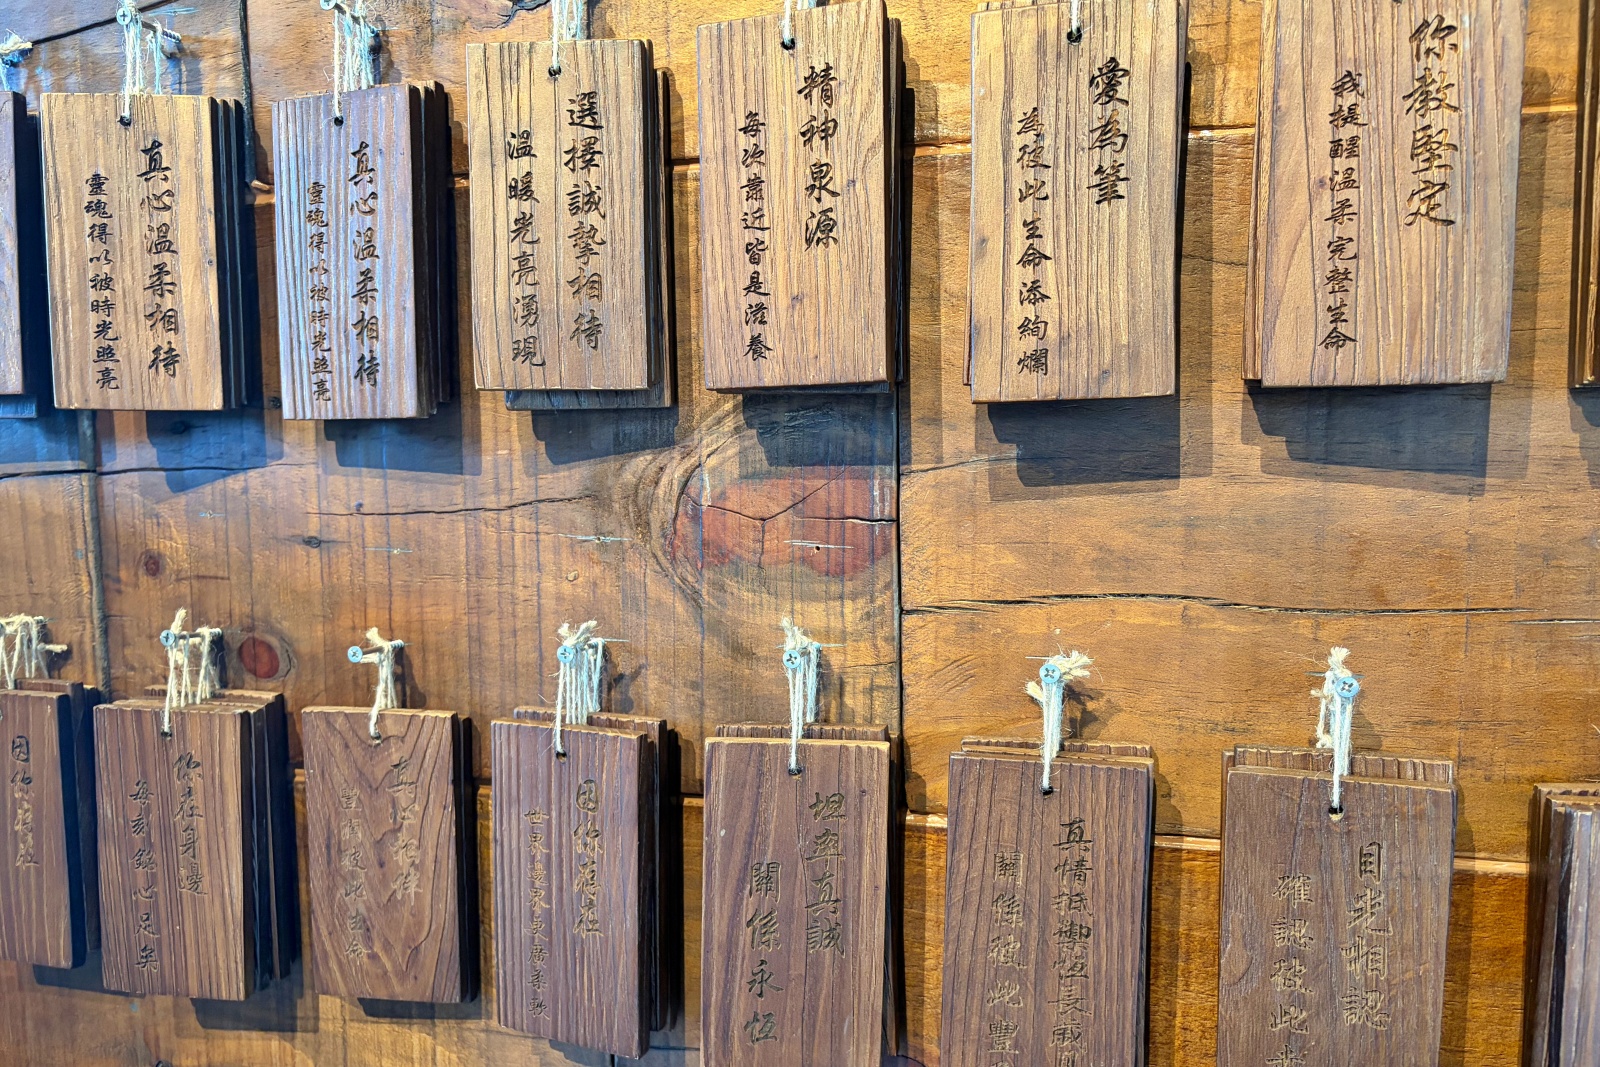 真心溫柔相待
靈魂得以被時光照亮
真心溫柔相待
靈魂得以被時光照亮
選擇誠摯相待
溫暖光亮湧現
精神泉源
每次靠近皆是滋養
愛為筆
為彼此生命添絢爛
你教堅定
我提醒溫柔完整生命
因你存在
你在身邊
每刻銘心足矣
真心相伴
豐獨彼此生命
因你存在
世界邊界更廣柔軟
坦率真誠
關係永恆
真情抵禦恆長歲月
關係彼此豐
目光相認
確認彼此